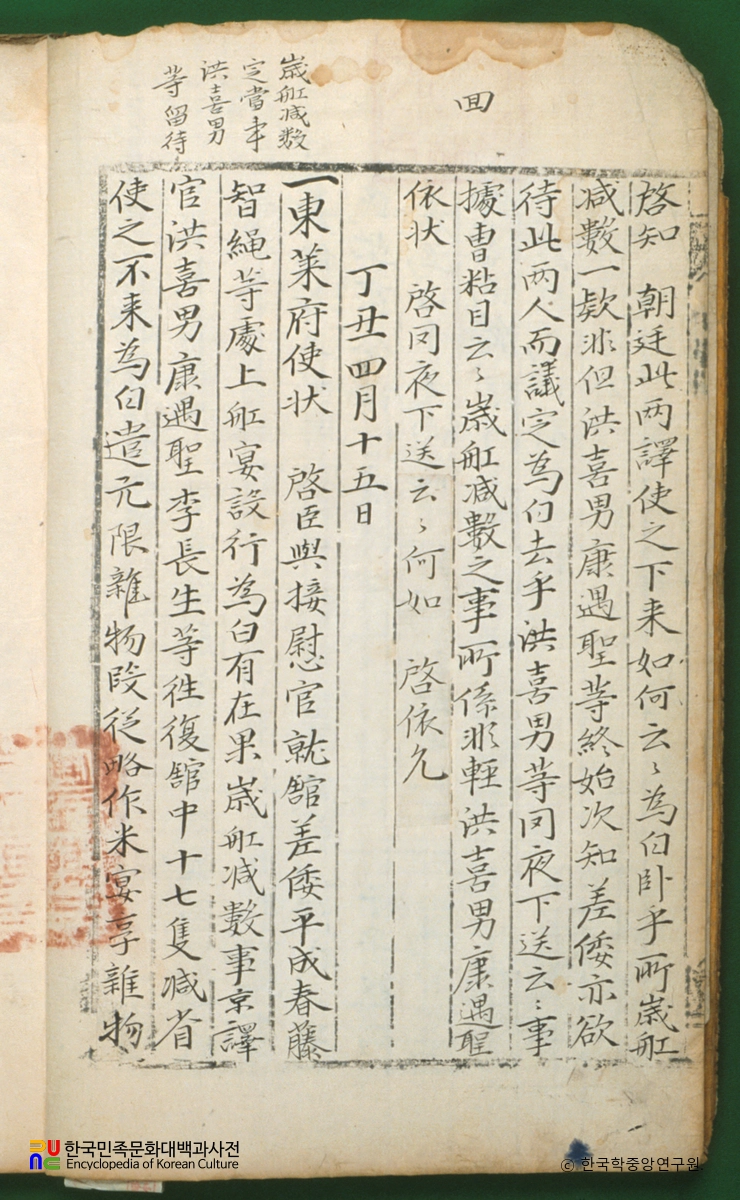 回
歲舡減數
定當事
洪喜男
等留待
啓知 朝廷此兩譯使之下来如何云〻為白卧乎所歲舡
减數一欵非但洪喜男康遇聖等終始次知差倭亦欲
待此兩人而議定為白去乎洪喜男等罔夜下送云〻事
據曹粘目云〻歲舡减數之事所係非輕洪喜男康遇聖
依状 啓罔夜下送云〻何如 啓依允
丁丑四月十五日
一東萊府使状 啓臣與接慰官就舘差倭平成春藤
智繩等處上舡宴設行為白有在果歲舡减數事京譯
官洪喜男康遇聖李長生等徃復舘中十七隻减省
使之不来為白遣元限雜物段從略作米宴享雜物
한국민족문화대백과사전
Encyclopedia of Korean Culture
© 한국학중앙연구원